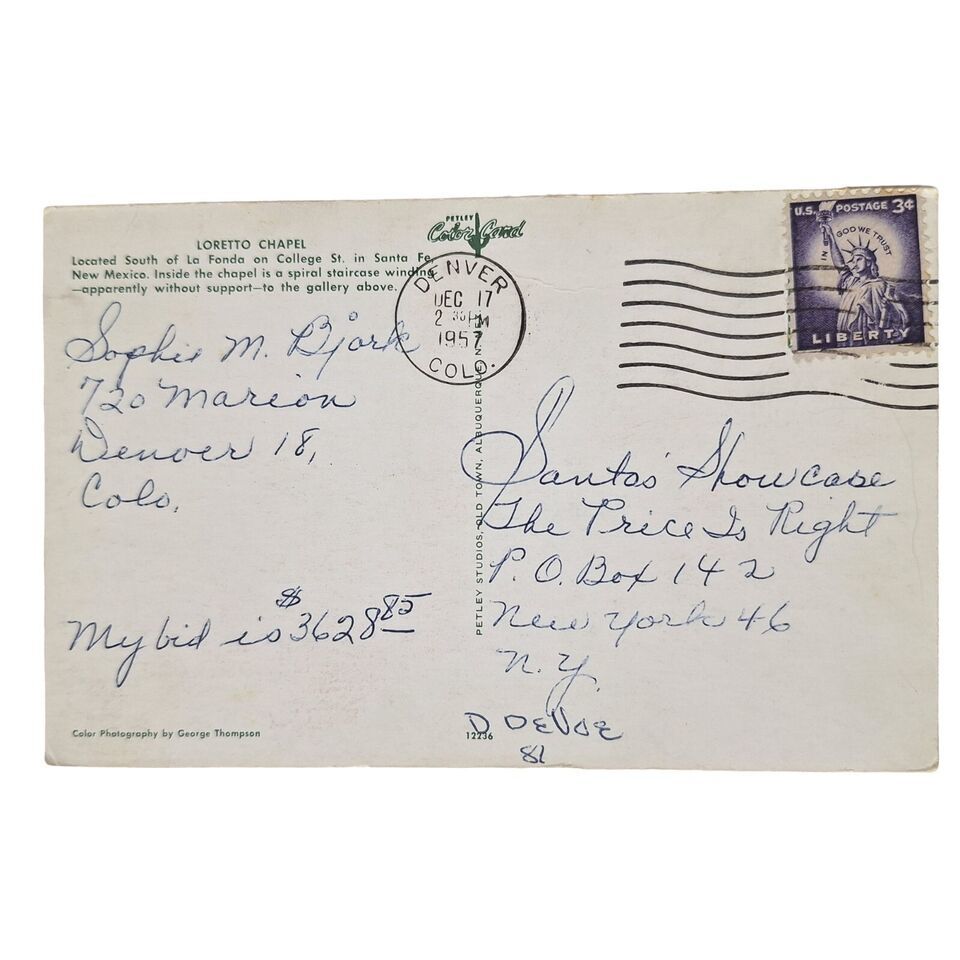 LORETTO CHAPEL
Located South of La Fonda on College St. in Santa Fe,
New Mexico. Inside the chapel is a spiral staircase winding
—apparently without support—to the gallery above.
PETLEY
Color Card
DENVER
DEC 17
2 30 PM
1957
COLO.
U.S. POSTAGE 3¢
IN GOD WE TRUST
LIBERTY
Sophie M. Bjork
720 Marion
Denver 18,
Colo.
My bid is $3628 85
Santa's Showcase
The Price Is Right
P. O. Box 142
New York 46
N. Y.
D DEVOE
81
PETLEY STUDIOS, OLD TOWN, ALBUQUERQUE, NEW MEX.
Color Photography by George Thompson
12236